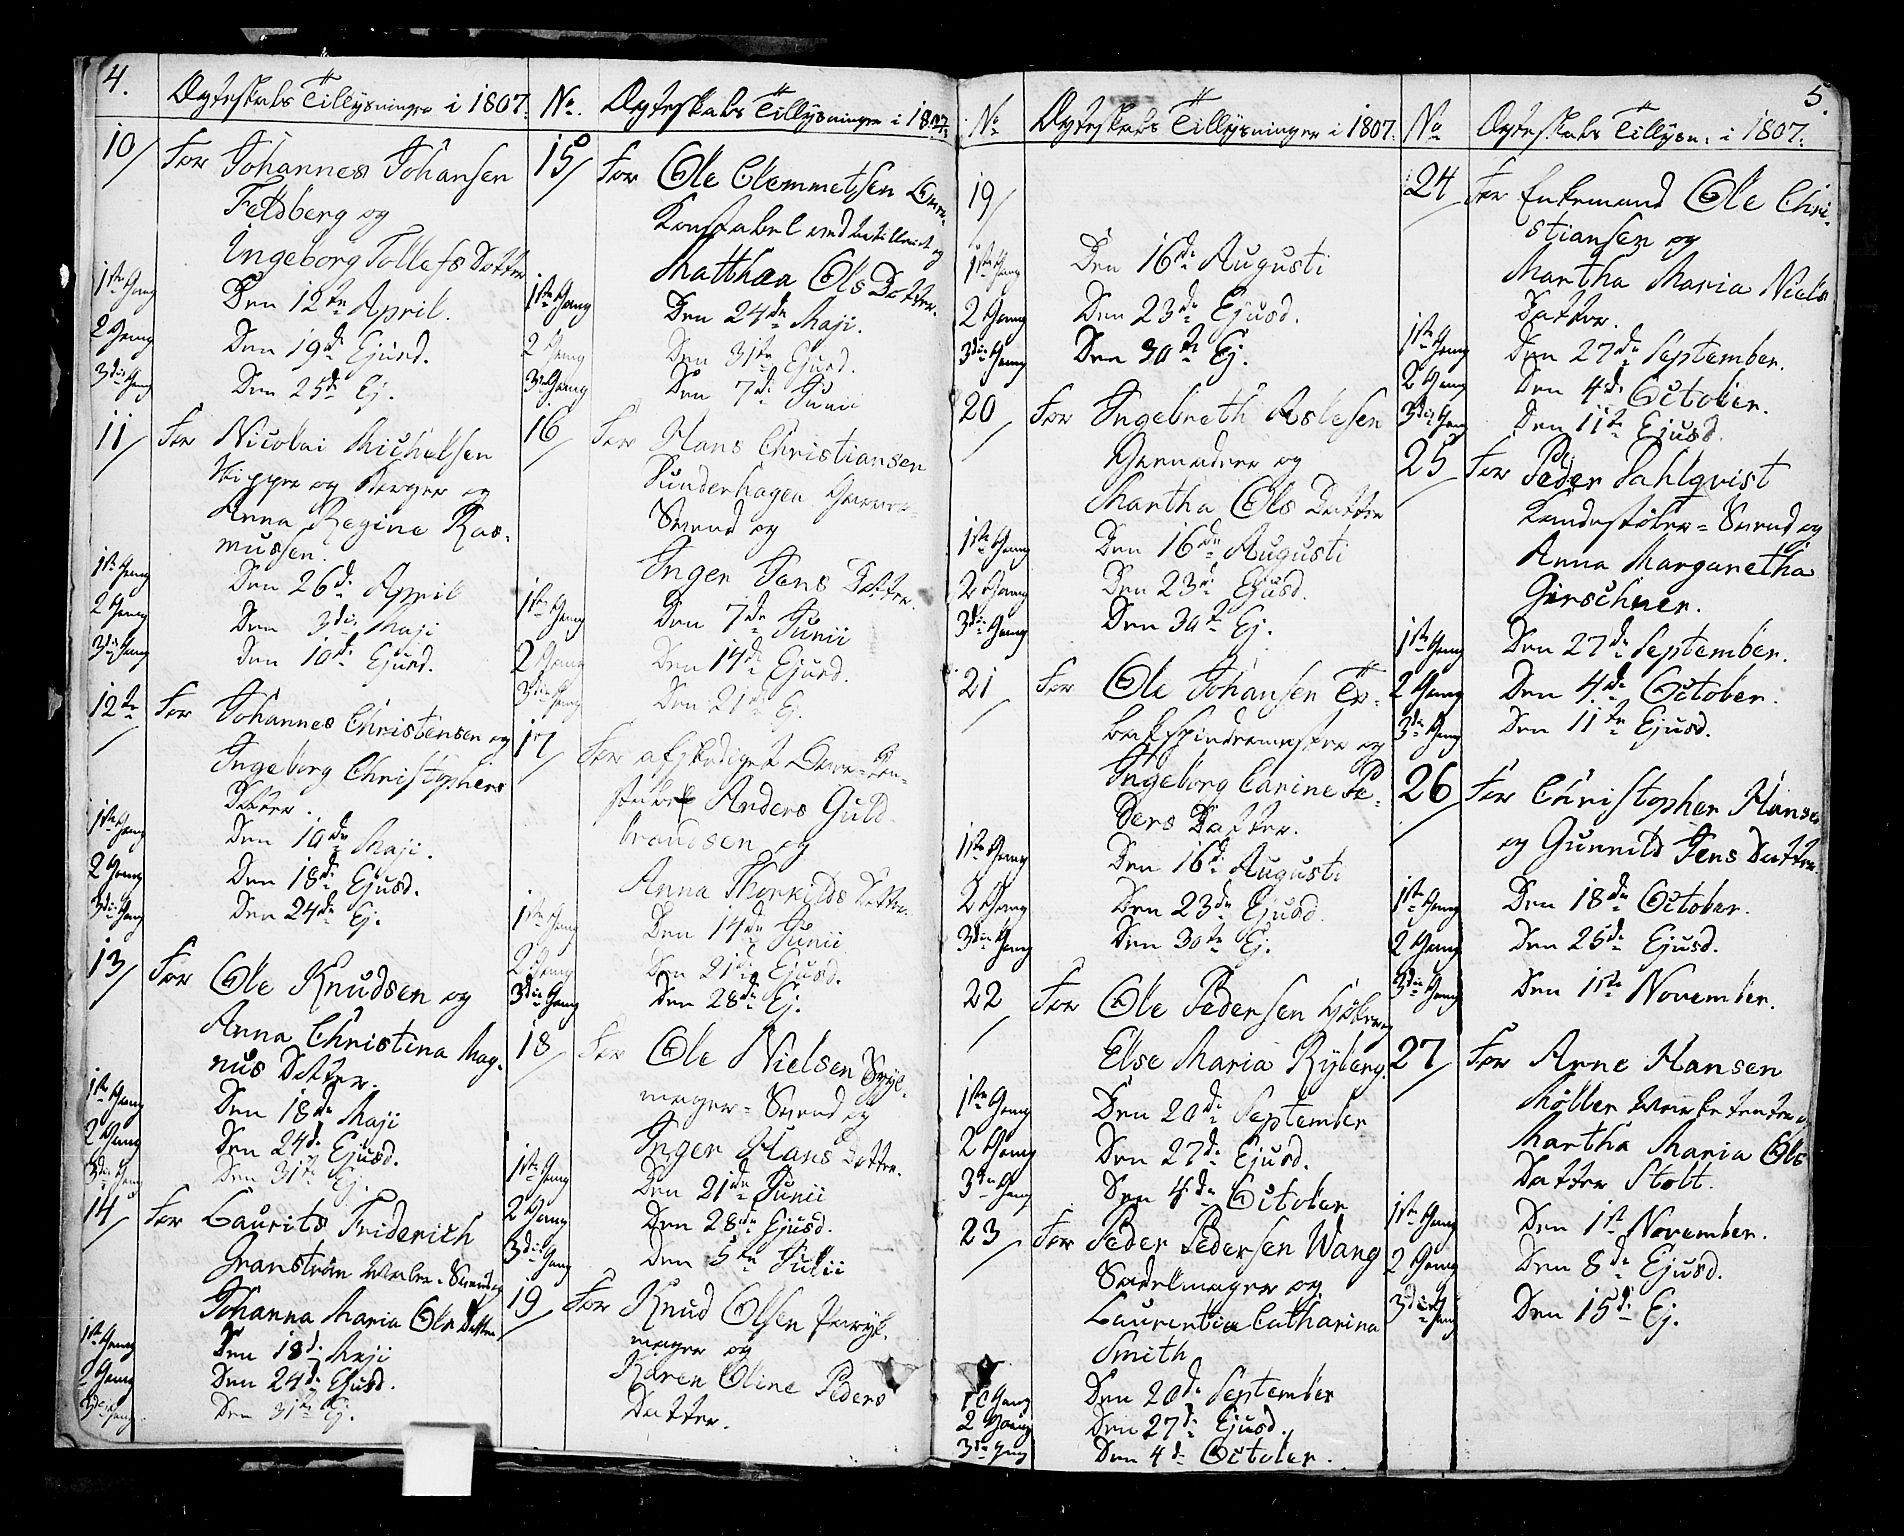 4.
Ægteskabs Tillysninger i 1807.
10/ For Johannes Johansen
Feldberg og
Ingeborg Tollefs Datter
1ste Gang Den 12te April.
2 Gang Den 19de Ejusd.
3die Gang Den 25de Ej.
11/ For Nicolai Michelsen
Skipper og Borger og
Anna Regine Ras-
mussen.
1ste Gang Den 26de April
2 Gang Den 3die Maji
3die Gang Den 10de Ejusd.
12te For Johannes Christensen og
Ingeborg Christophers
Datter.
1ste Gang Den 10de Maji.
2 Gang Den 18de Ejusd.
3die Gang Den 24de Ej.
13/ For Ole Knudsen og
Anna Christina Mag-
nus Datter.
1ste Gang Den 18de Maji
2 Gang Den 24de Ejusd.
3die Gang Den 31te Ej.
14/ For Laurits Friderich
Granstrøm Svend og
Johanna Maria Ols Datter
1ste Gang Den 18de Maji
2 Gang Den 24de Ejusd.
3die Gang Den 31te Ej.
No. Ægteskabs Tillysninger i 1807.
15/ For Ole Clemmetsen
Konstabel ved og
Matthea Ols Datter.
1ste Gang Den 24de Maji.
2 Gang Den 31te Ejusd.
3die Gang Den 7de Junii
16/ For Hans Christiansen
Sunderhagen Garver-
Svend og
Inger Jens Datter.
1ste Gang Den 7de Junii
2 Gang Den 14de Ejusd.
3die Gang Den 21de Ej.
17/ For afskediget Con-
stabel Anders Guld-
brandsen og
Anna Thorkilds Datter.
1ste Gang Den 14de Junii
2 Gang Den 21de Ejusd.
3die Gang Den 28de Ej.
18/ For Ole Nielsen
mager-Svend og
Inger Hans Datter.
1ste Gang Den 21de Junii
2 Gang Den 28de Ejusd.
3die Gang Den 5te Julii
19/ For Knud Olsen Paryk-
mager og
Karen Oline Peders
Datter.
No. Ægteskabs Tillysninger i 1807.
19/
1ste Gang Den 16de Augusti
2 Gang Den 23de Ejusd.
3die Gang Den 30te Ej.
20/ For Ingebreth Aslesen
Grenadeer og
Martha Ols Datter
1ste Gang Den 16de Augusti
2 Gang Den 23de Ejusd.
3die Gang Den 30te Ej.
21/ For Ole Johansen To-
bakspindemester og
Ingeborg Carine Pe-
ders Datter.
1ste Gang Den 16de Augusti
2 Gang Den 23de Ejusd.
3die Gang Den 30te Ej.
22/ For Ole Pedersen og
Else Maria Ryberg.
1ste Gang Den 20de September
2 Gang Den 27de Ejusd.
3die Gang Den 4de October
23/ For Peder Pedersen Wang
Sadelmager og
Laurentia Catharina
Smith
Gang Den 20de September
2 Gang Den 27de Ejusd.
3die Gang Den 4de October.
5.
No Ægteskabs Tillysn: i 1807.
24/ For Enkemand Ole Chri-
stiansen og
Martha Maria Niels
Datter.
1ste Gang Den 27de September.
2 Gang Den 4de October.
3die Gang Den 11te Ejusd.
25/ For Peder Dahlqvist
Kandestøber-Svend og
Anna Margaretha
Girschner.
1ste Gang Den 27de September.
2 Gang Den 4de October.
3die Gang Den 11te Ejusd.
26/ For Christopher Hansen
og Gunnild Jens Datter.
1ste Gang Den 18de October.
2 Gang Den 25de Ejusd.
3die Gang Den 1ste November.
27/ For Arne Hansen
Møller og
Martha Maria Ols
Datter Stolt.
1ste Gang Den 1ste November.
2 Gang Den 8de Ejusd.
3die Gang Den 15de Ej.